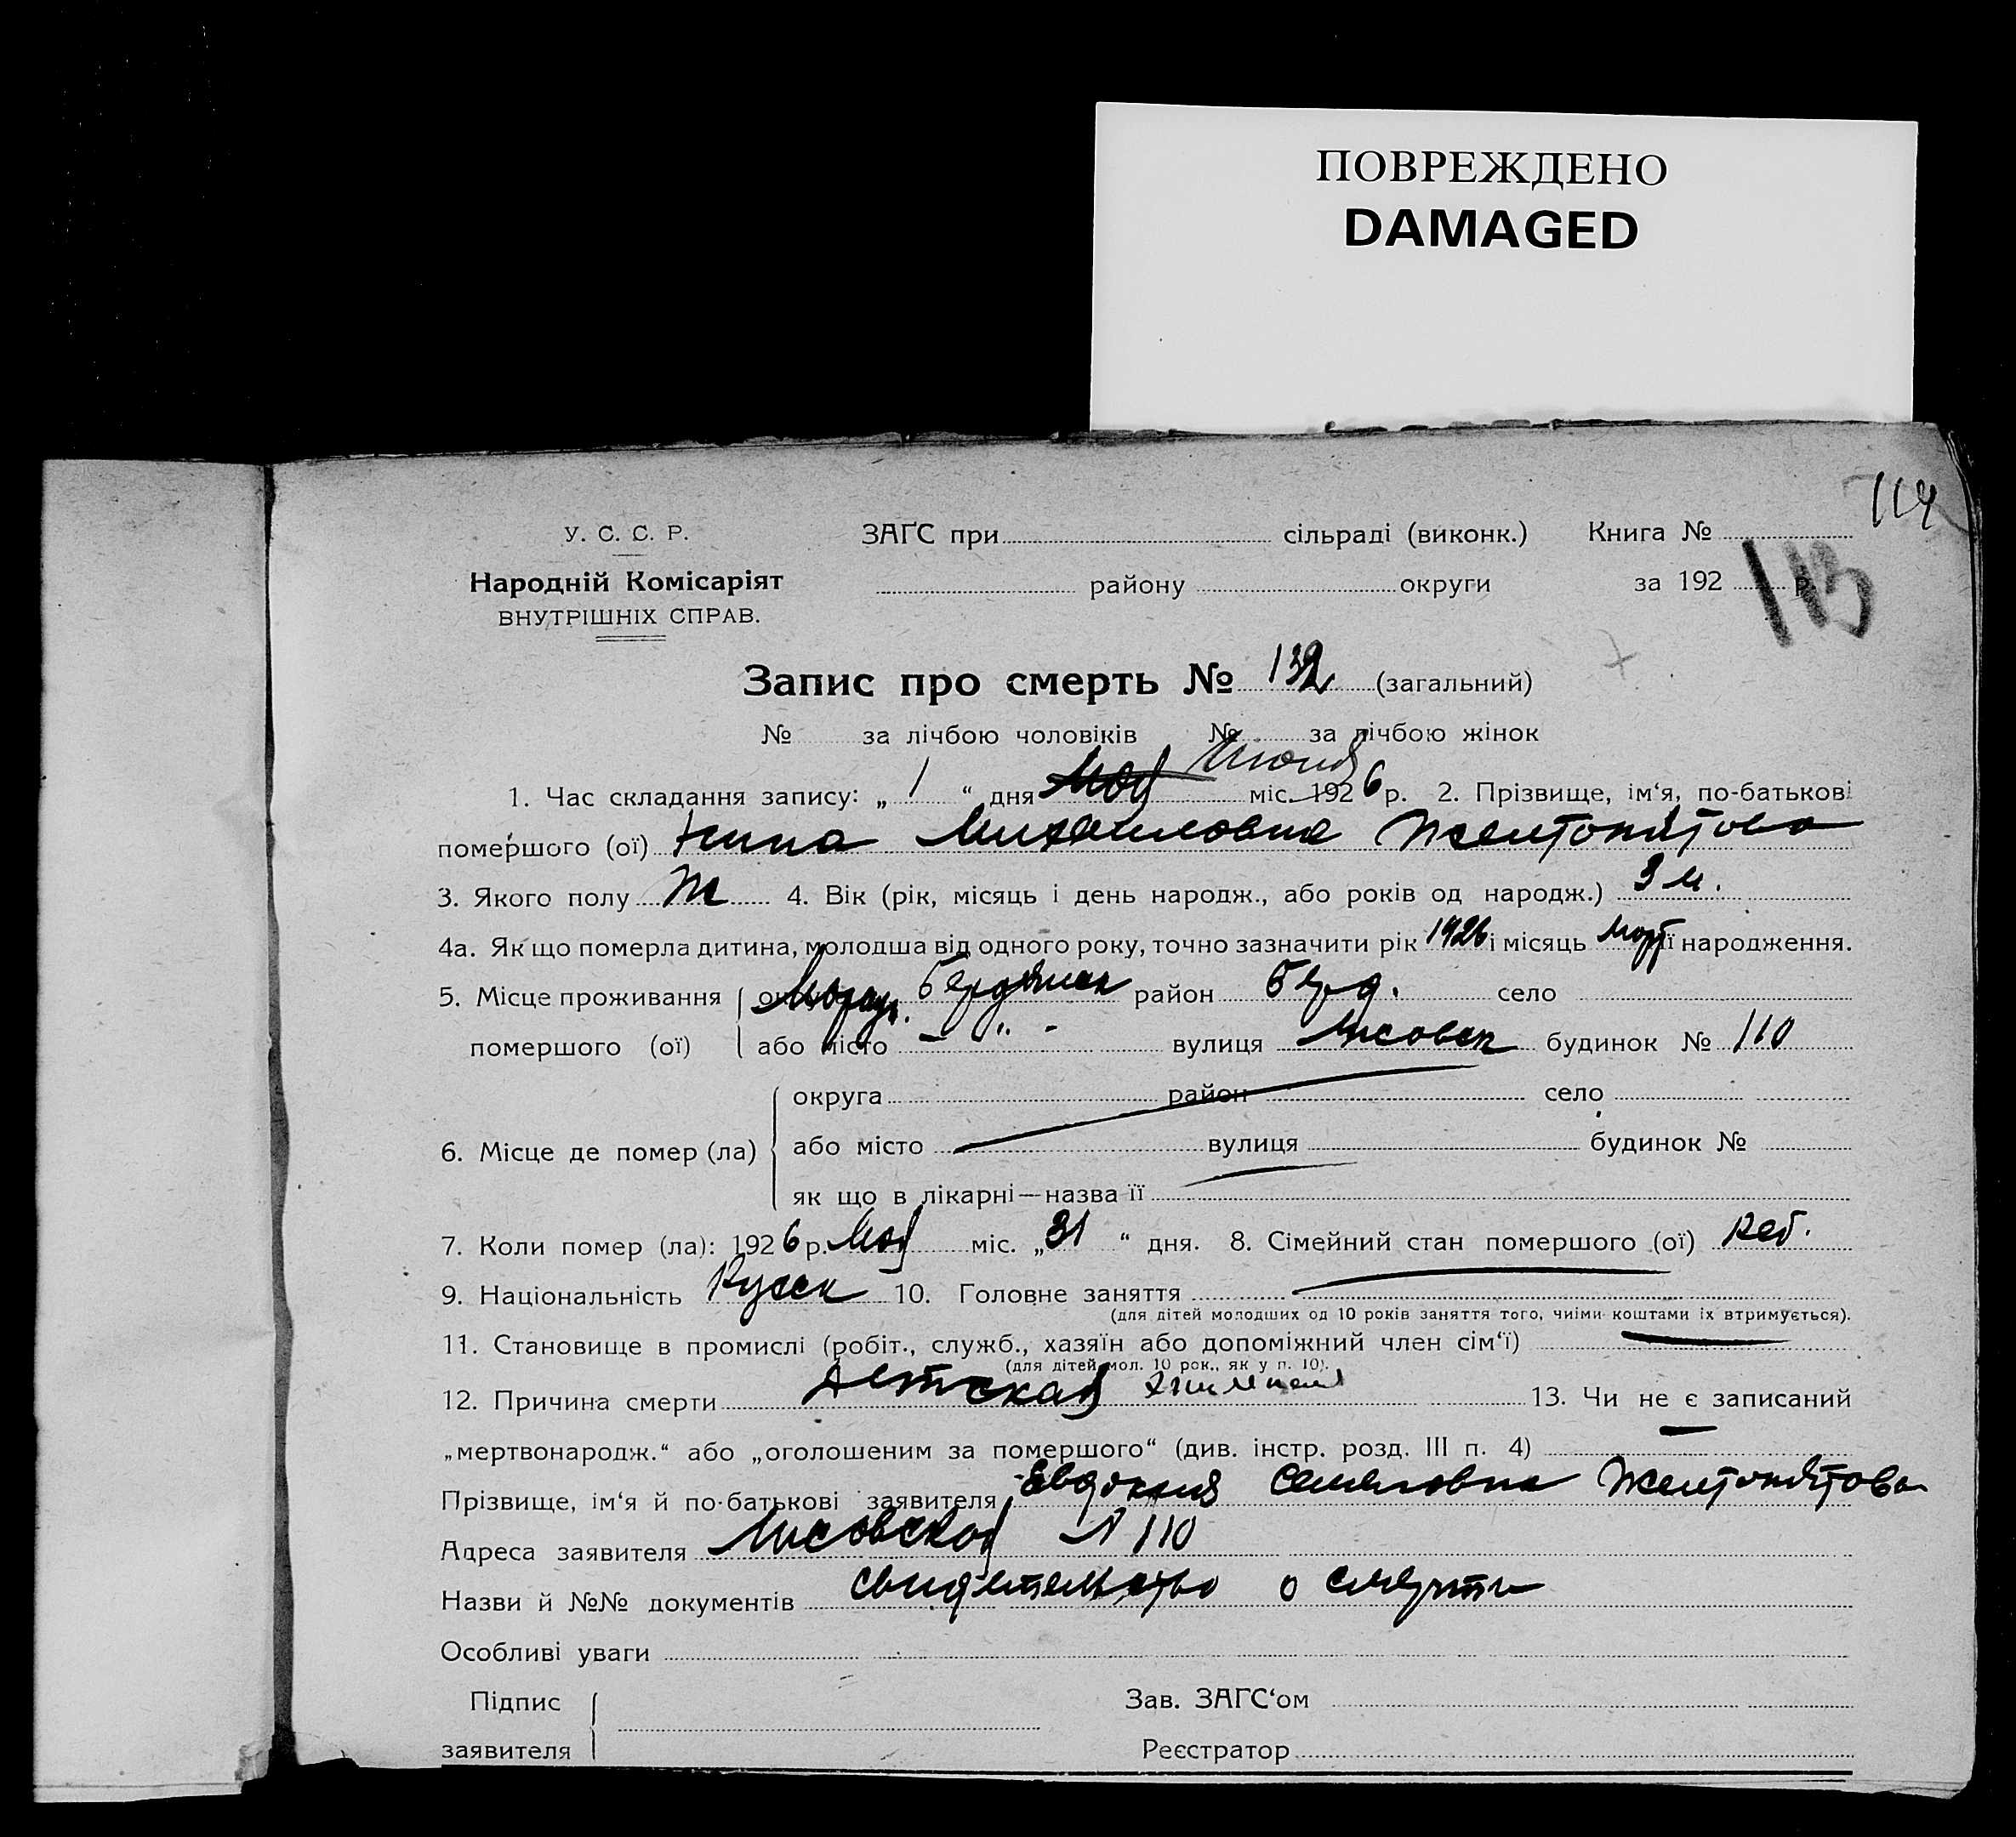 ПОВРЕЖДЕНО
DAMAGED
114
У. С. С. Р. ЗАГС при сільраді (виконк.) Книга №
Народній Комісаріят району округи за 192 р.
113
ВНУТРІШНІХ СПРАВ.
Запис про смерть № 132 (загальний)
№ за лічбою чоловіків № за лічбою жінок
Июня
1. Час складання запису: „ 1 “ дня Мая міс. 1926 р. 2. Прізвище, ім‘я, по-батькові
помершого (ої) Нина Михайловна Желтопятова
3. Якого полу Ж 4. Вік (рік, місяць і день народж., або років од народж.) 3 м.
4а. Як що померла дитина, молодша від одного року, точно зазначити рік 1926 і місяць март її народження.
5. Місце проживання округа Бердянск район Берд. село
помершого (ої) або місто — „ - вулиця Лисовск будинок № 110
округа район село
6. Місце де помер (ла) або місто вулиця будинок №
як що в лікарні—назва її
7. Коли помер (ла): 1926 р. Мая міс. „31“ дня. 8. Сімейний стан помершого (ої) реб.
9. Національність Русск 10. Головне заняття
(для дітей молодших од 10 років заняття того, чиїми коштами їх втримується).
11. Становище в промислі (робіт., служб., хазяїн або допоміжний член сім‘ї)
(для дітей мол. 10 рок., як у п. 10).
12. Причина смерти Детская 13. Чи не є записаний
„мертвонародж.“ або „оголошеним за помершого“ (див. інстр. розд. III п. 4) —
Прізвище, ім‘я й по-батькові заявителя Евдокия Семеновна Желтопятова
Адреса заявителя Лисовская № 110
Назви й №№ документів свидетельство о смерти
Особливі уваги
Підпис Зав. ЗАГС‘ом
заявителя Реєстратор